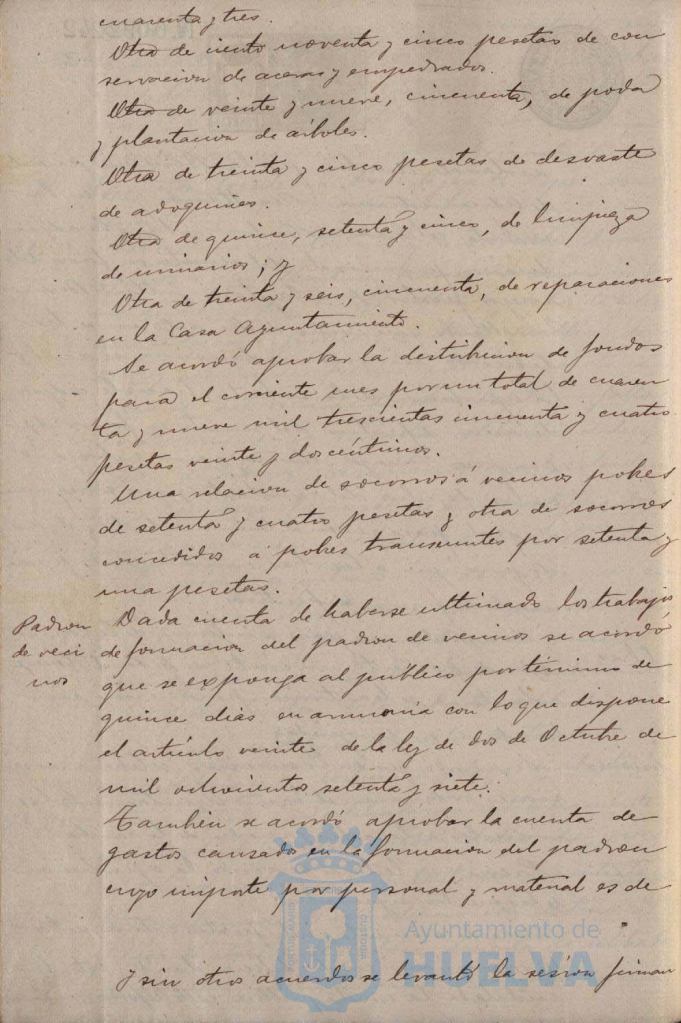 cuarenta y tres.
Otra de ciento noventa y cinco pesetas de con
servacion de aceras y empedrados.
Otra de veinte y nueve, cincuenta, de poda
y plantacion de árboles.
Otra de treinta y cinco pesetas de desvaste
de adoquines.
Otra de quince, setenta y cinco, de limpieza
de urinarios; y
Otra de treinta y seis, cincuenta, de reparaciones
en la Casa Ayuntamiento.
Se acordó aprobar la distribucion de fondos
para el corriente mes por un total de cuaren
ta y nueve mil trescientas cincuenta y cuatro
pesetas veinte y dos céntimos.
Una relacion de socorros á vecinos pobres
de setenta y cuatro pesetas y otra de socorros
concedidos á pobres transeuntes por setenta y
una pesetas.
Padron
de veci
nos
Dada cuenta de haberse ultimado los trabajos
de formacion del padron de vecinos se acordó
que se exponga al público por término de
quince dias en armonía con lo que dispone
el artículo veinte de la ley de dos de Octubre de
mil ochocientos setenta y siete.
Tambien se acordó aprobar la cuenta de
gastos causados en la formacion del padron
cuyo importe por personal y material es de
Y sin otros acuerdos se levantó la sesion firman
Ayuntamiento de
HUELVA